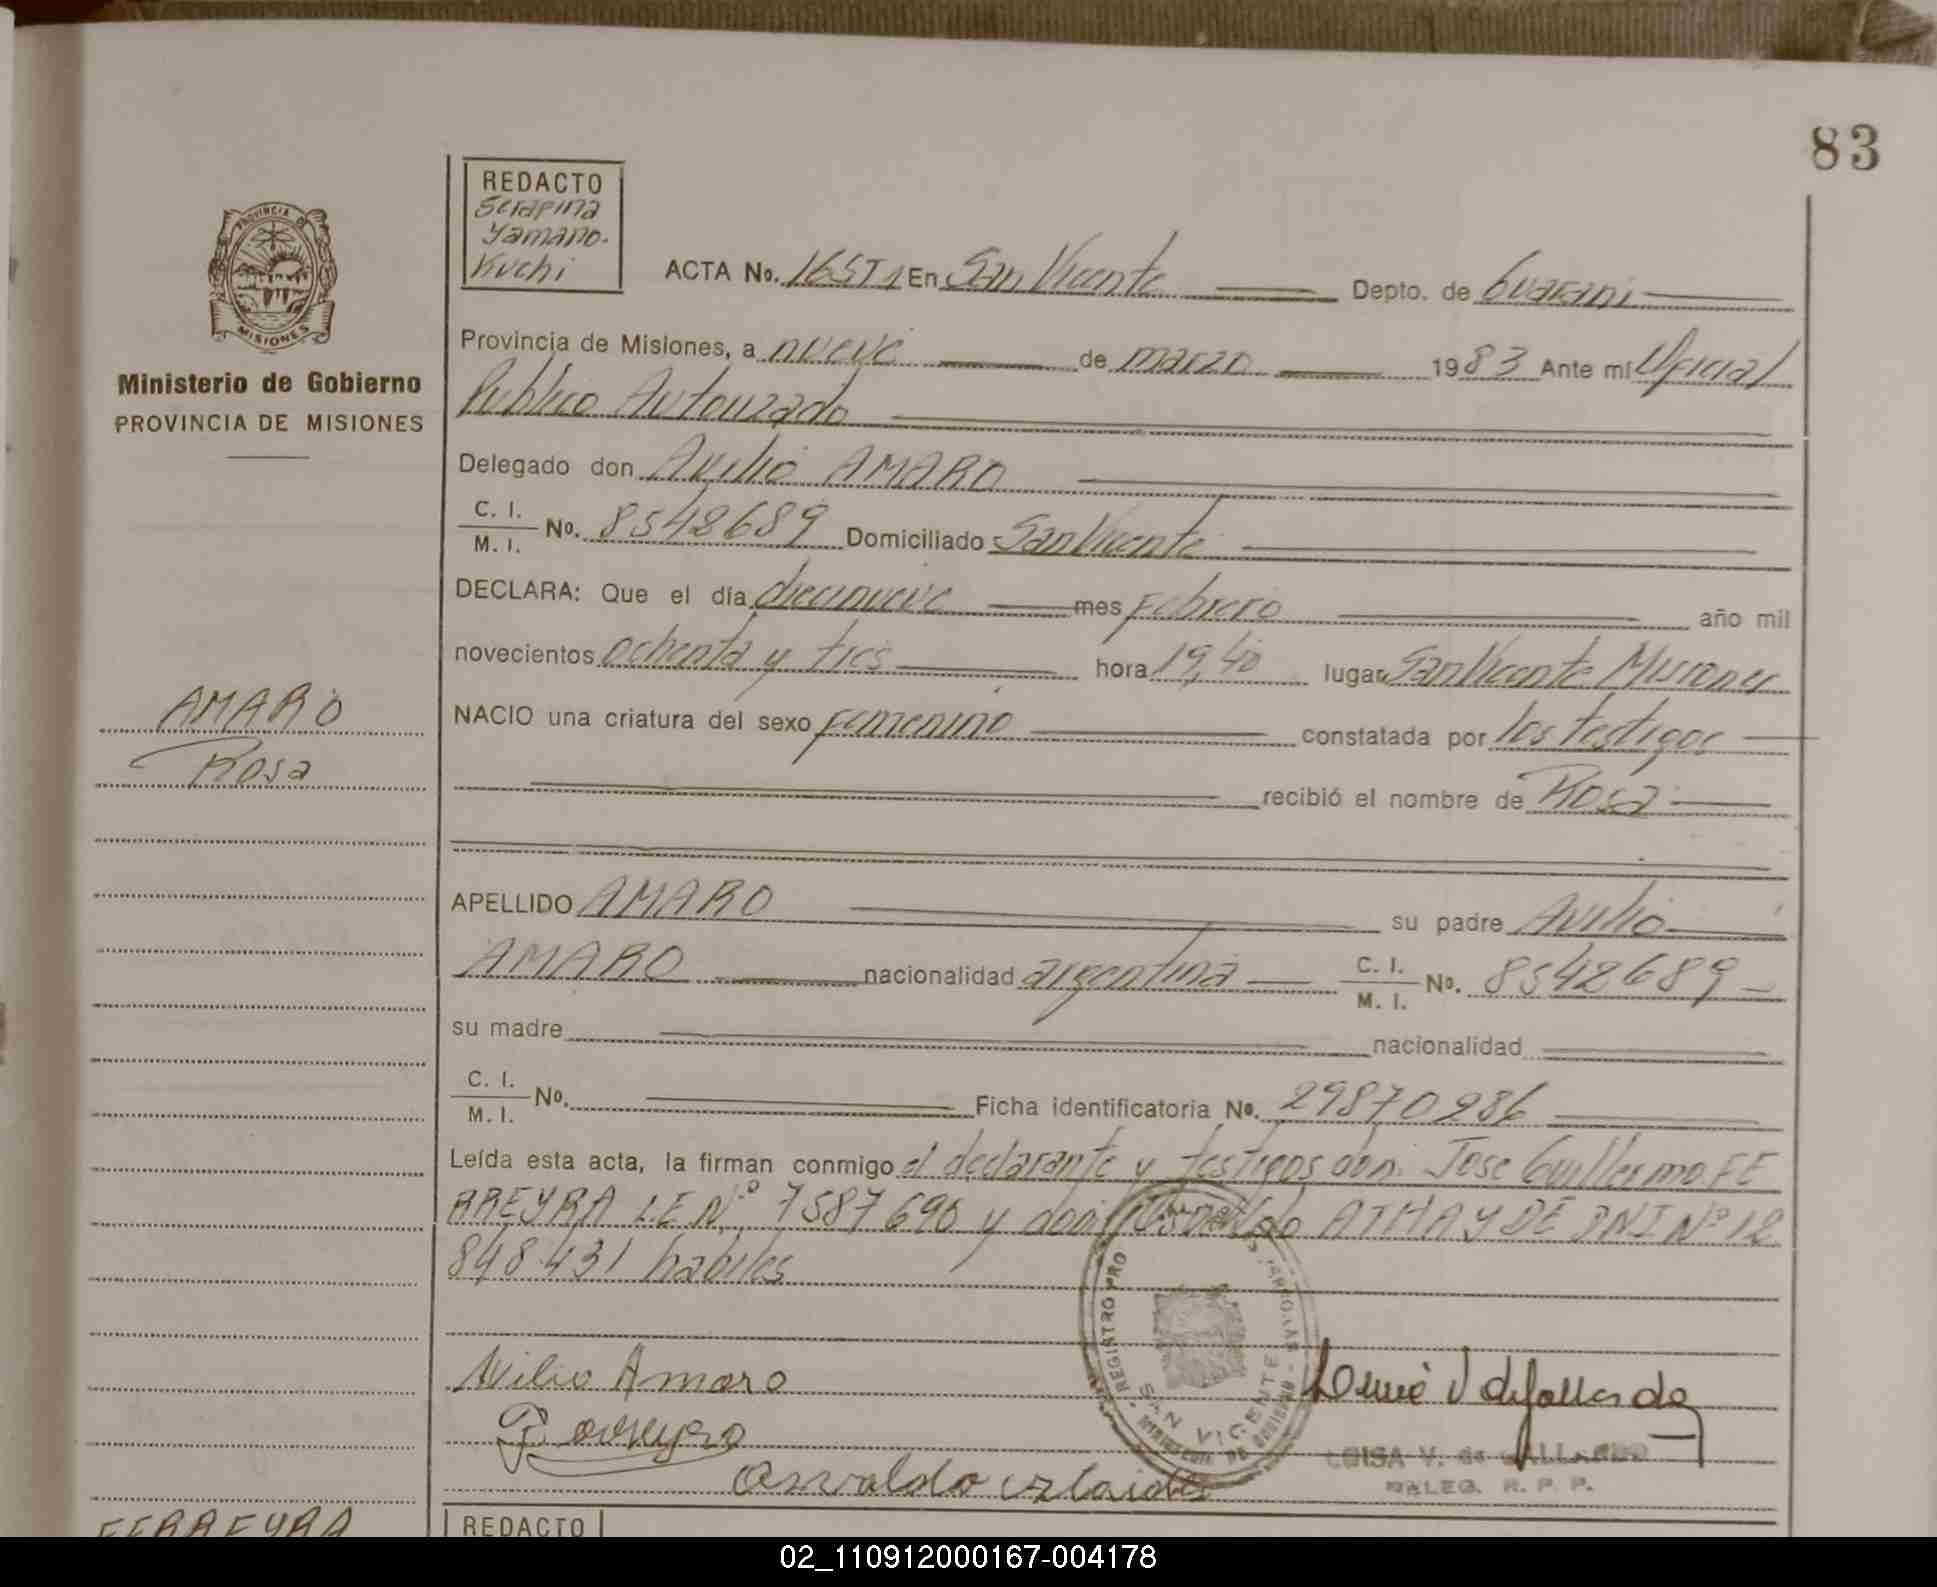 83
REDACTO
Serapina
Yamano-
Kuchi
PROVINCIA DE
MISIONES
Ministerio de Gobierno
PROVINCIA DE MISIONES
ACTA No. 165T1 En San Vicente Depto. de Guarani
Provincia de Misiones, a nueve de marzo 1983 Ante mí Oficial
Publico Autorizado
Delegado don Avilio AMARO
C. I. / M. I. No. 8542689 Domiciliado San Vicente
DECLARA: Que el día diecinueve mes Febrero año mil
novecientos ochenta y tres hora 19,40 lugar San Vicente Misiones
AMARO
Rosa
NACIO una criatura del sexo femenino constatada por los testigos
recibió el nombre de Rosa
APELLIDO AMARO su padre Avilio
AMARO nacionalidad argentina C. I. / M. I. No. 8542689
su madre nacionalidad
C. I. / M. I. No. Ficha identificatoria No. 29870286
Leída esta acta, la firman conmigo el declarante y testigos don: Jose Guillermo FE
RREYRA L.E Nº 7587690 y don Osvaldo ATHAYDE DNI Nº 12
848.431 habiles
Avilio Amaro
Osvaldo
REGISTRO PRO
SAN VICENTE
LUISA V. de GALLARDO
DELEG. R. P. P.
FERREYRA
REDACTO
02_110912000167-004178